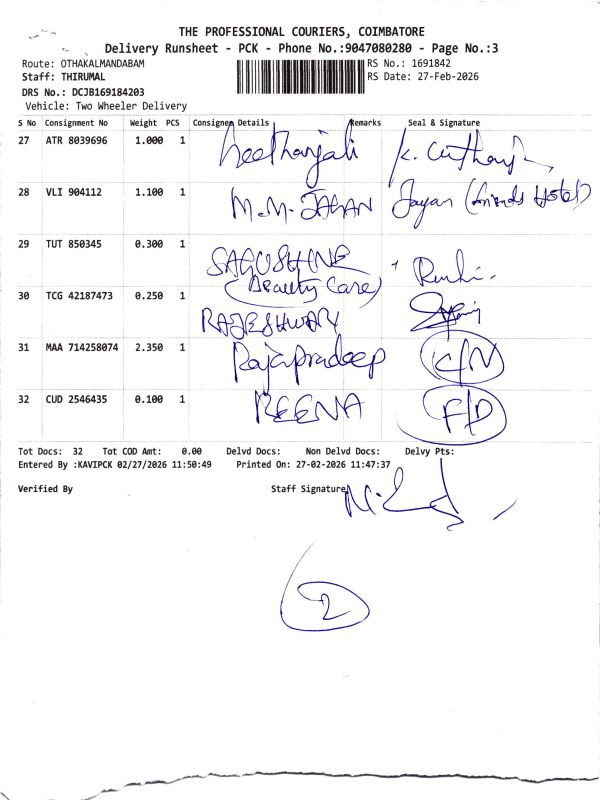 THE PROFESSIONAL COURIERS, COIMBATORE
Delivery Runsheet - PCK - Phone No.:9047080280 - Page No.:3
Route: OTHAKALMANDABAM RS No.: 1691842
Staff: THIRUMAL RS Date: 27-Feb-2026
DRS No.: DCJB169184203
Vehicle: Two Wheeler Delivery
S No Consignment No Weight PCS Consignee Details Remarks Seal & Signature
27 ATR 8039696 1.000 1 Geethanjali
28 VLI 904112 1.100 1 M.M. Jayan (friends Hotel)
29 TUT 850345 0.300 1
(Beauty Care)
30 TCG 42187473 0.250 1 RAJESHWARY
31 MAA 714258074 2.350 1 Rajapradeep C/N
32 CUD 2546435 0.100 1 REENA F/D
Tot Docs: 32 Tot COD Amt: 0.00 Delvd Docs: Non Delvd Docs: Delvy Pts:
Entered By :KAVIPCK 02/27/2026 11:50:49 Printed On: 27-02-2026 11:47:37
Verified By Staff Signature
2